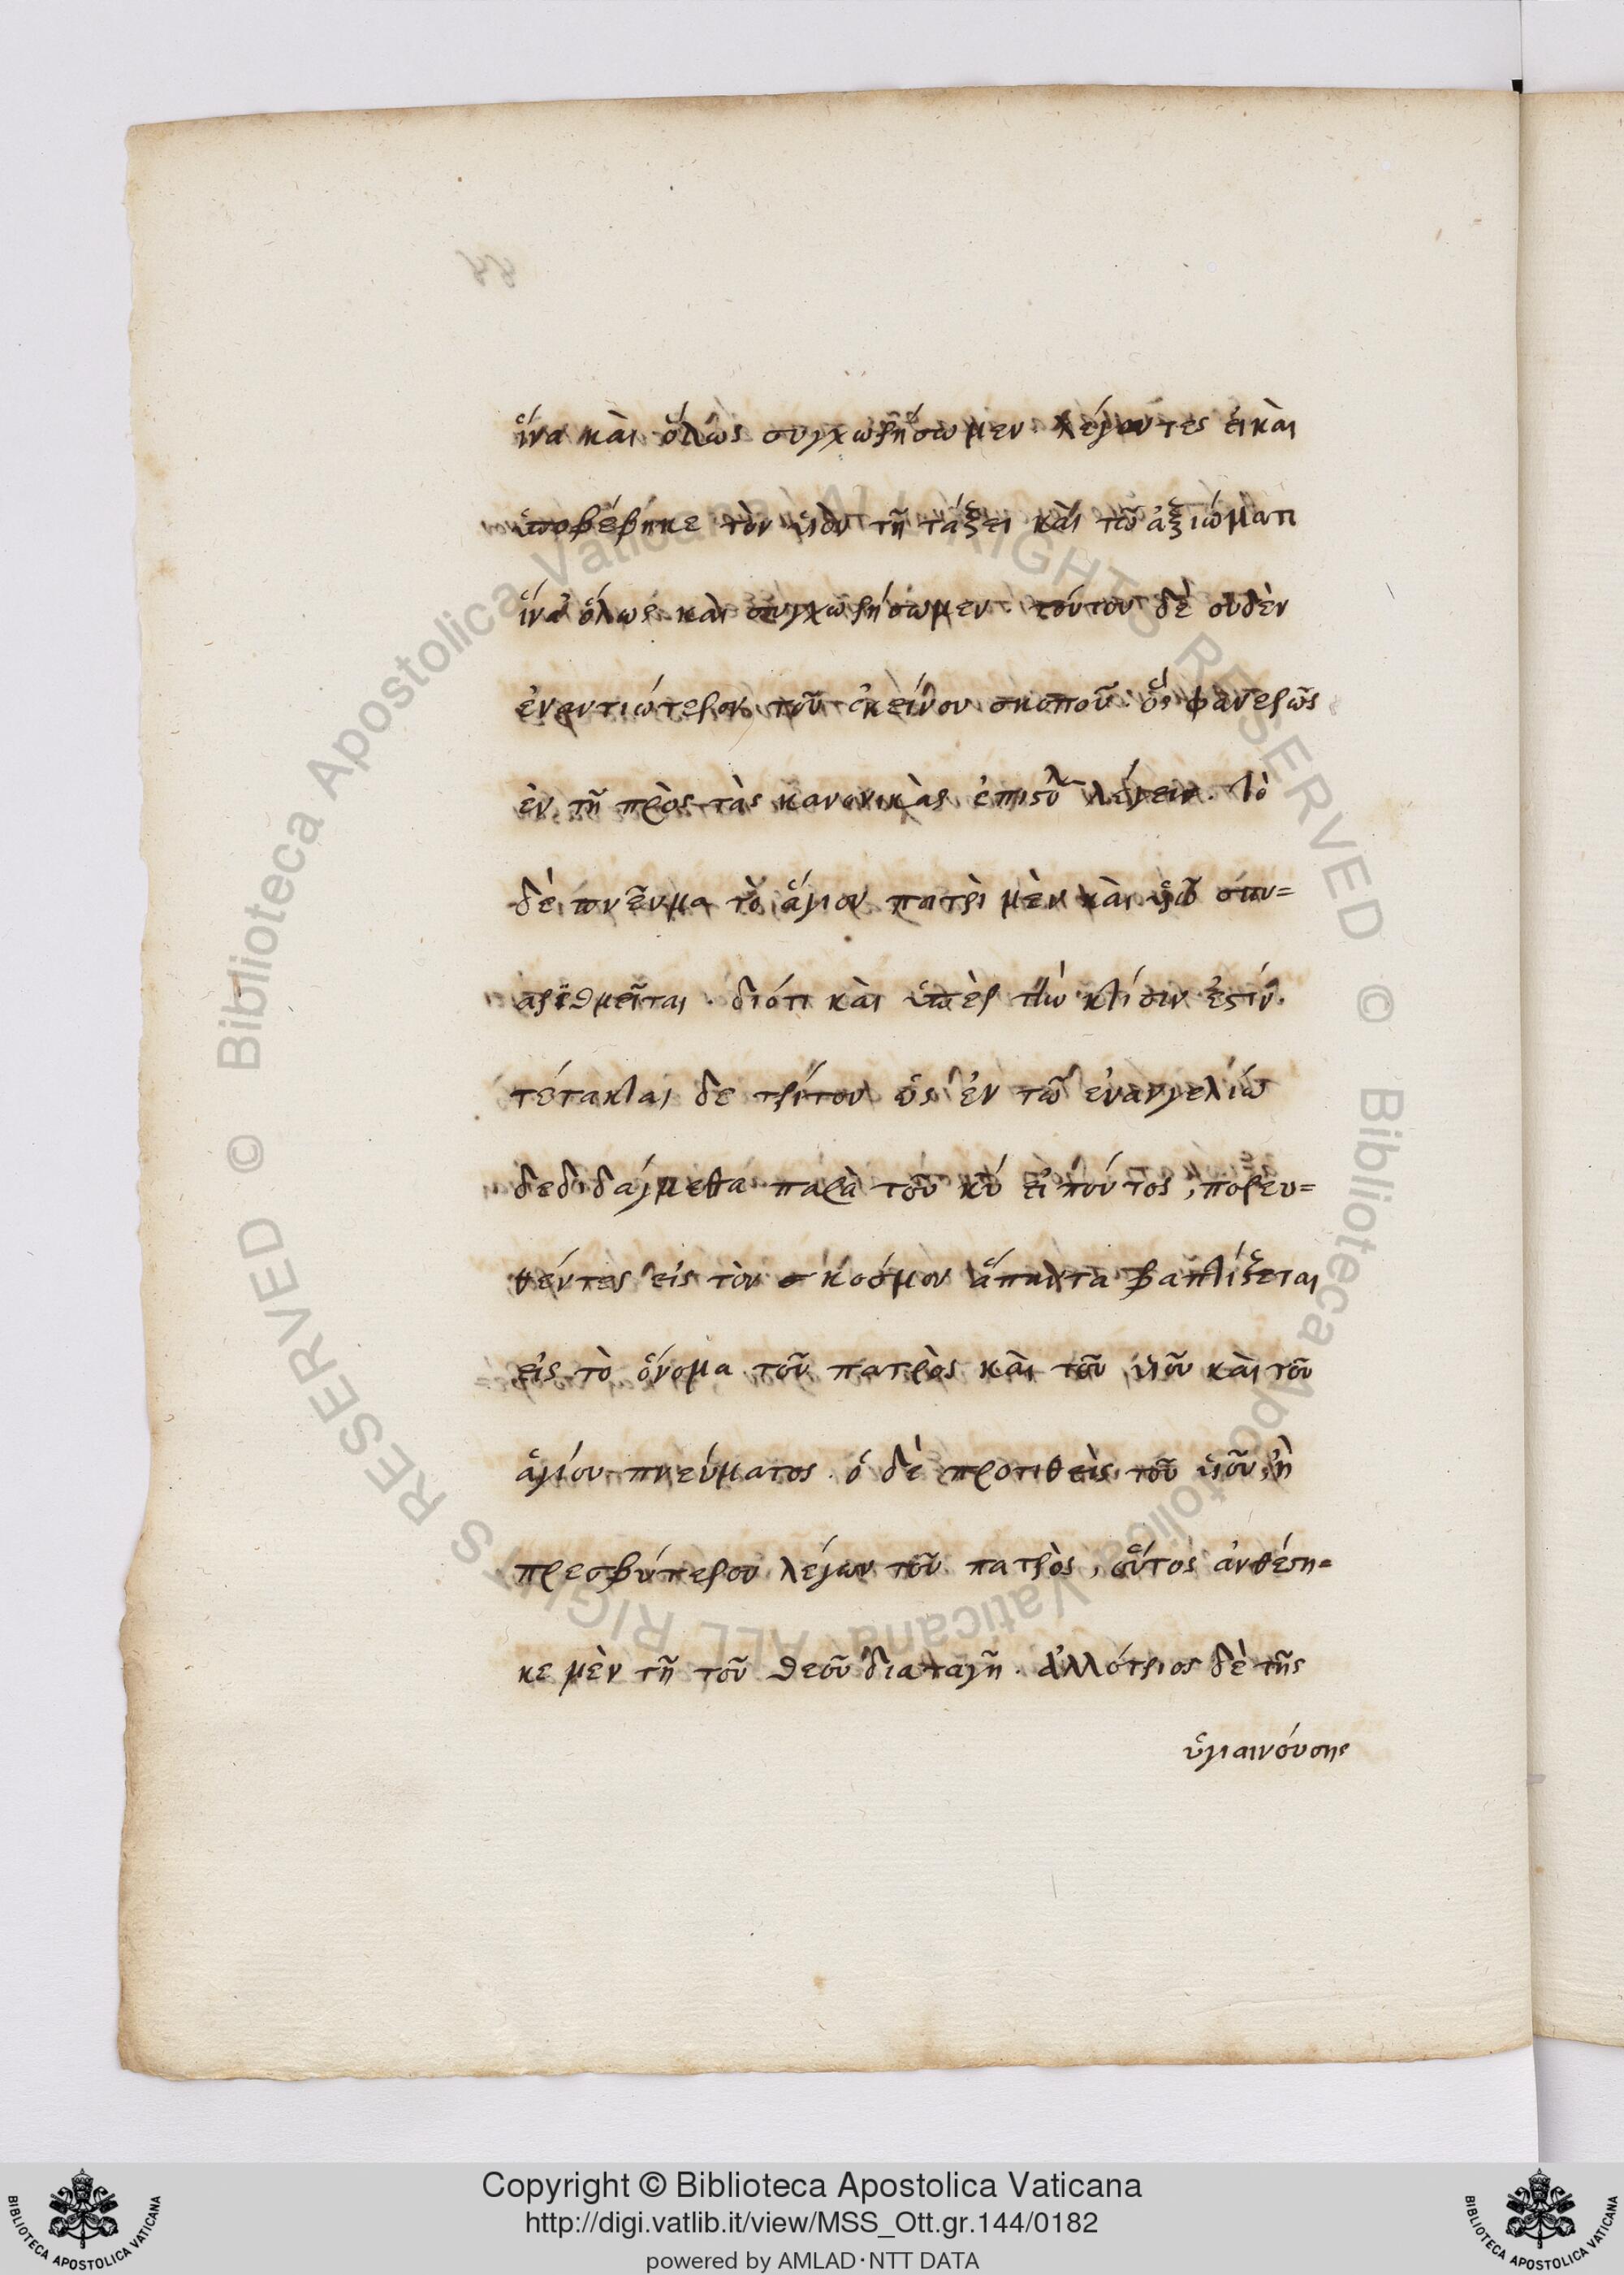 ἵνα καὶ ὅλως συγχωρήσωμεν λέγοντες εἰ καὶ
ὑποβέβηκε τὸν υἱὸν τῆ τάξει καὶ τῶ ἀξιώματι
ἵνα ὅλως καὶ συγχωρήσωμεν. τούτου δὲ οὐδὲν
ἐναντιώτερον τοῦ ἐκείνου σκοποῦ. ὃς φανερῶς
ἐν τῆ πρὸς τὰς κανονικὰς ἐπιστολ λέγειν. Τὸ
δὲ πνεῦμα τὸ ἅγιον πατρὶ μὲν καὶ υἱῶ συν=
αριθμεῖται. διότι καὶ ὑπὲρ τὴν κτίσιν ἐστίν.
τέτακται δε τρίτον ὡς ἐν τῶ εὐαγγελίω
δεδιδάγμεθα παρὰ τοῦ κυ εἰπόντος, πορευ=
θέντες εἰς τὸν κόσμον ἅπαντα βαπτίζεται
εἰς τὸ ὄνομα τοῦ πατρὸς καὶ τοῦ υἱοῦ καὶ τοῦ
ἁγίου πνεύματος. ὁ δὲ προτιθεὶς τοῦ υἱοῦ, ἢ
πρεσβύτερον λέγων τοῦ πατρὸς, οὗτος ἀνθέστη=
κε μὲν τῆ τοῦ θεοῦ διαταγῆ. ἀλλότριος δὲ τῆς
ὑγιαινούσης
Biblioteca Apostolica Vaticana ALL RIGHTS RESERVED ©
Biblioteca Apostolica Vaticana ALL RIGHTS RESERVED ©
Copyright © Biblioteca Apostolica Vaticana
http://digi.vatlib.it/view/MSS_Ott.gr.144/0182
powered by AMLAD·NTT DATA
BIBLIOTECA APOSTOLICA VATICANA
BIBLIOTECA APOSTOLICA VATICANA